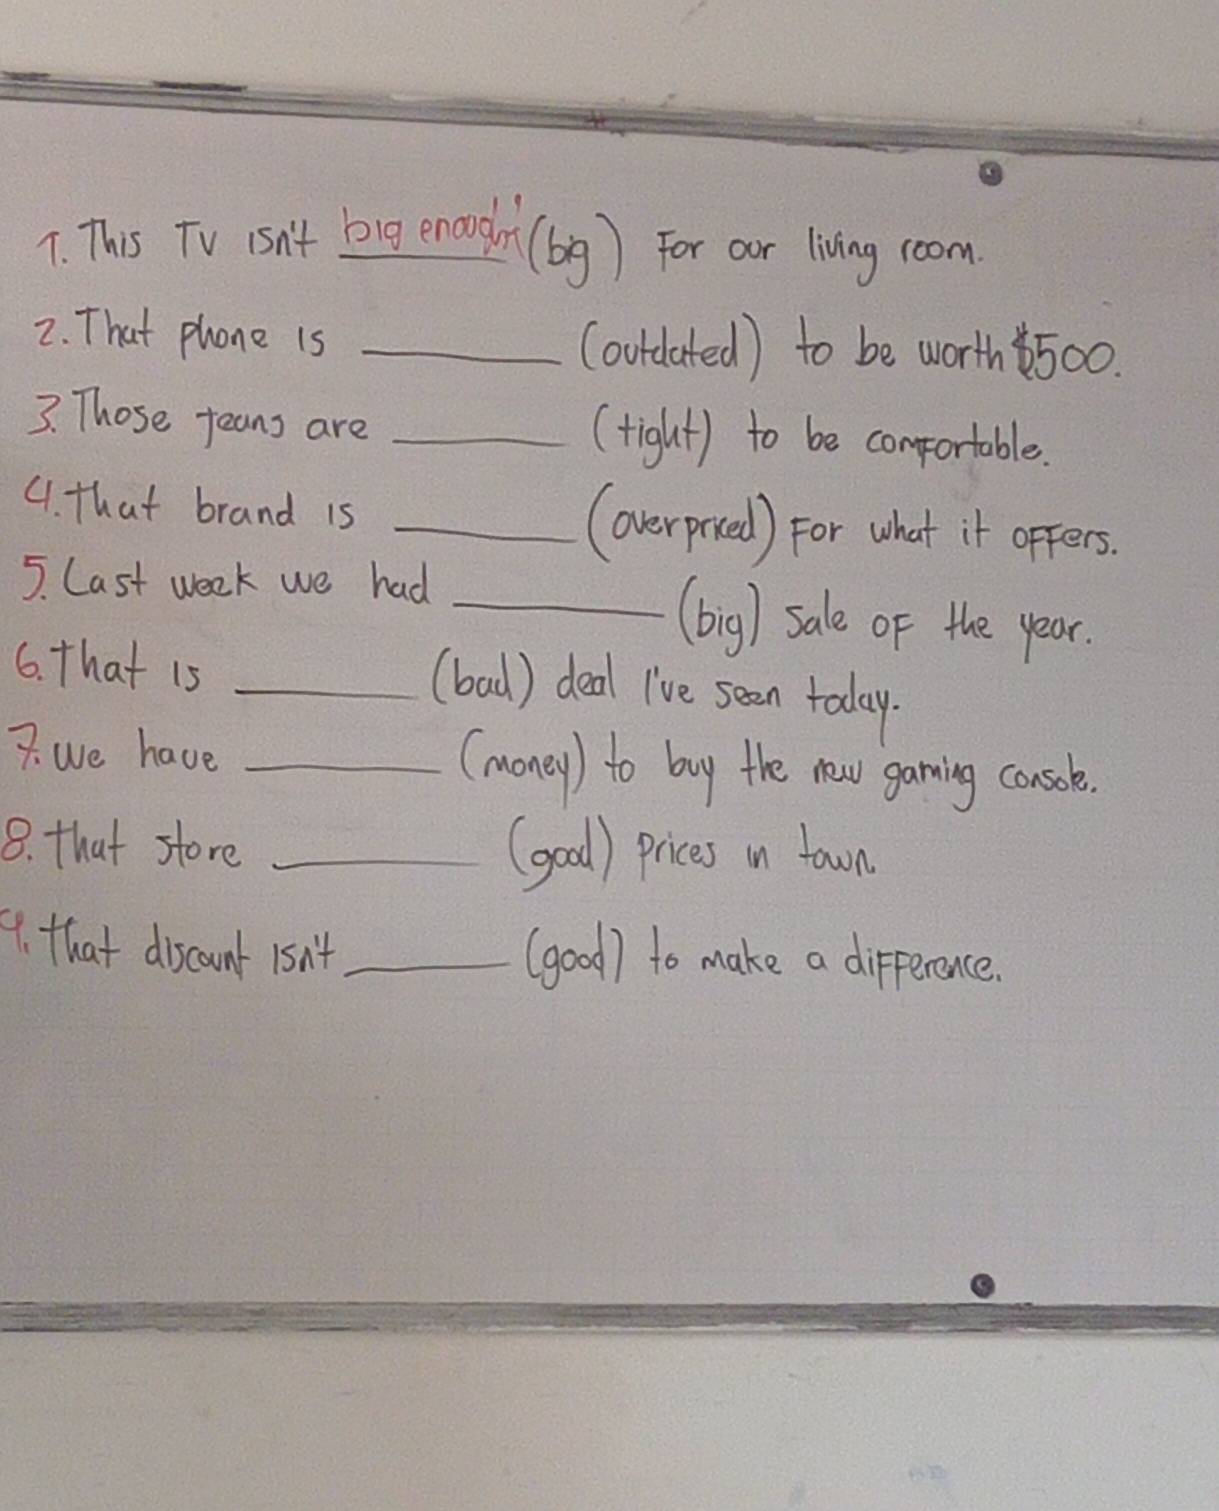 1. This TV isn't big enough (big) For our living room.
2. That phone is ________ (outdated) to be worth $500.
3. Those jeans are ________ (tight) to be comfortable.
4. That brand is ________ (overpriced) For what it offers.
5. Last week we had ________ (big) sale of the year.
6. That is ________ (bad) deal I've seen today.
7. We have ________ (money) to buy the new gaming console.
8. That store ________ (good) prices in town.
9. That discount isn't ________ (good) to make a difference.